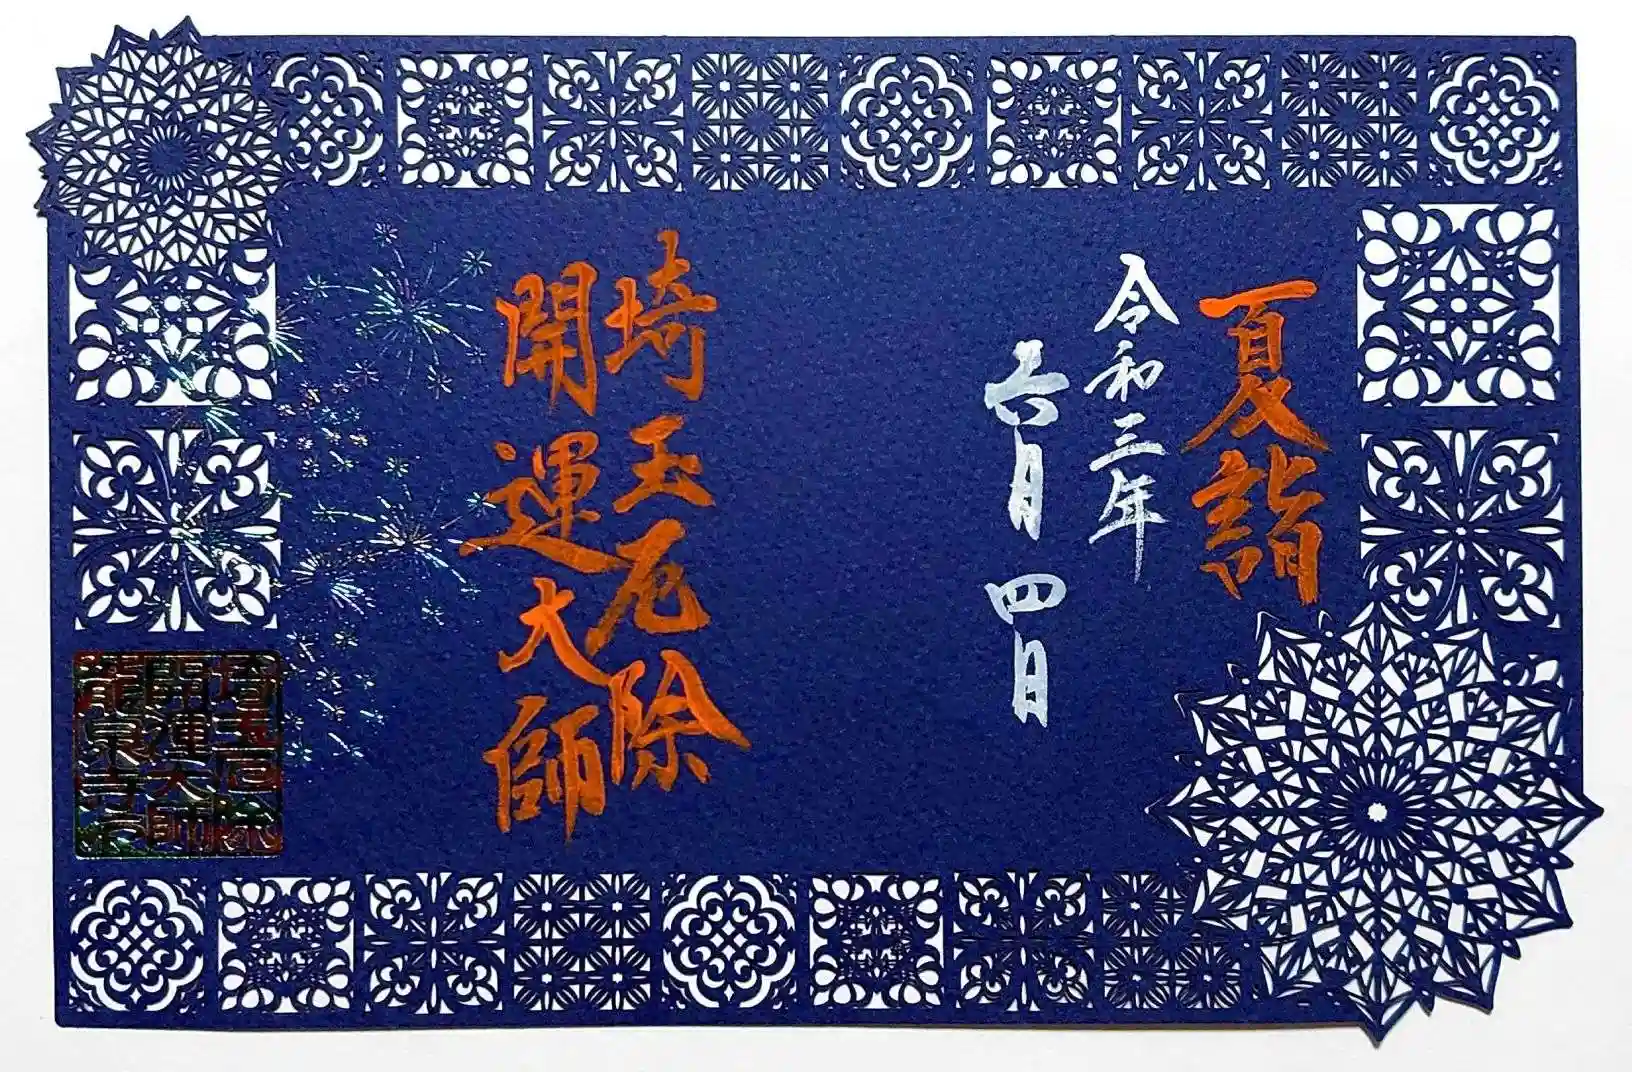 夏詣
令和三年
六月四日
埼玉厄除
開運大師
埼玉厄除
開運大師
龍泉寺印